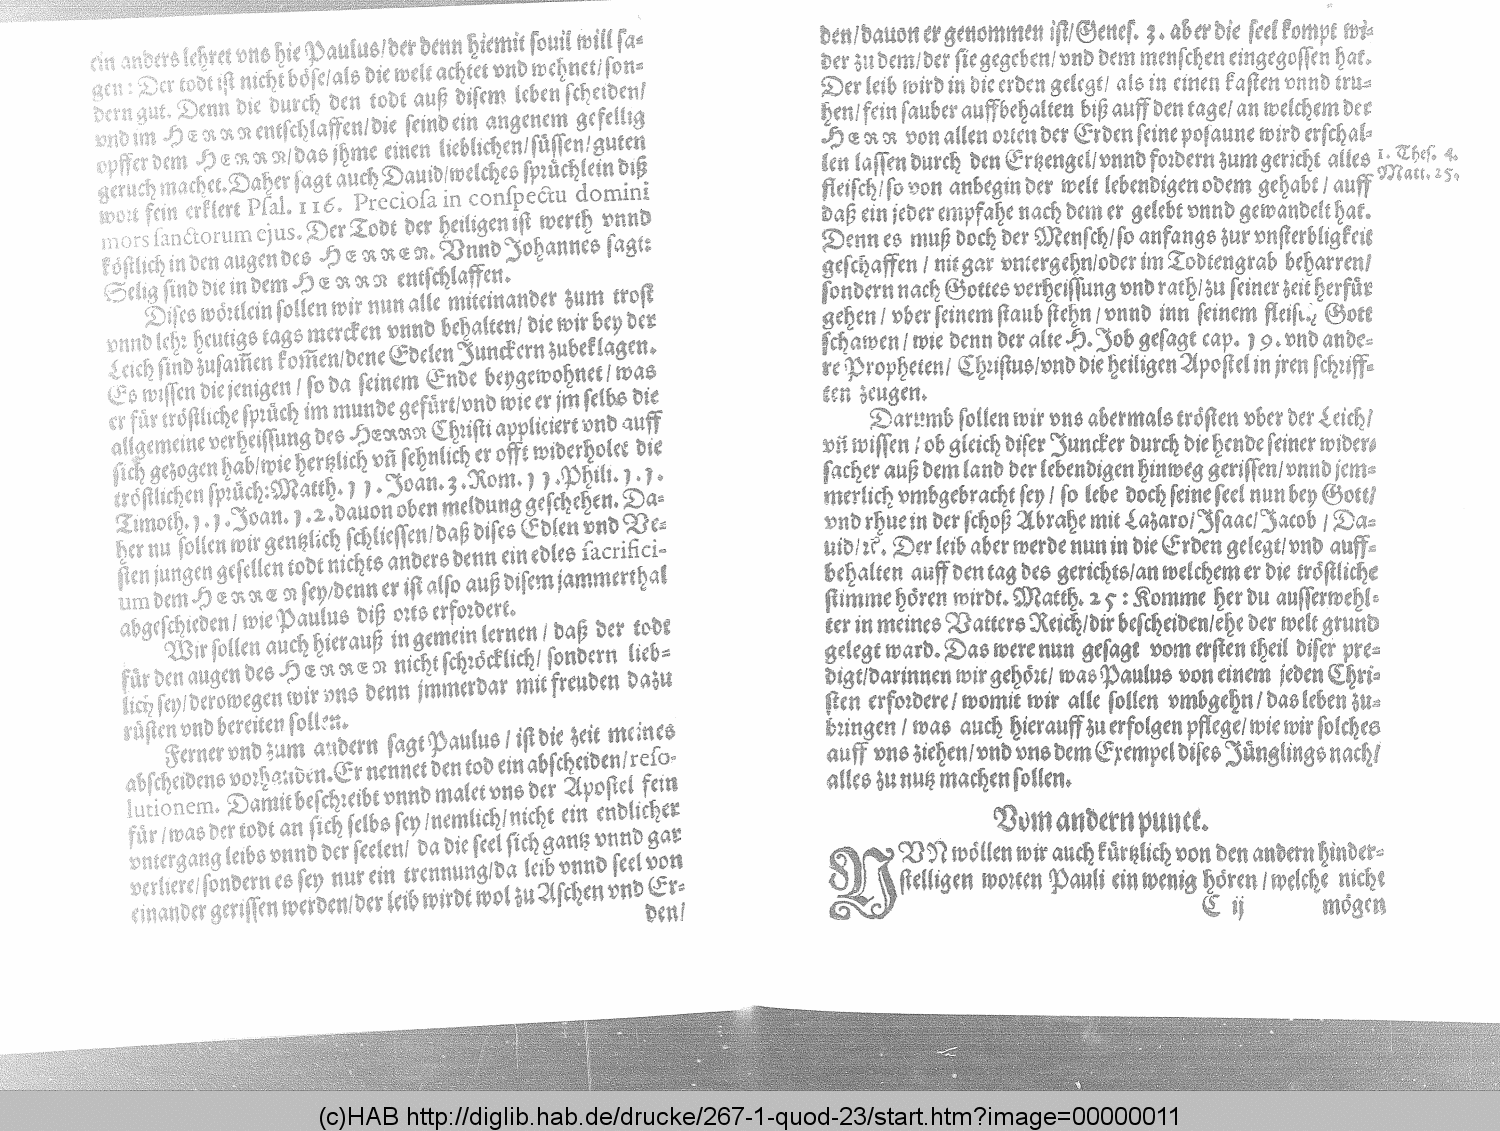 ein anders lehret vns hie Paulus/der denn hiemit souil will sa-
gen: Der todt ist nicht böse/als die welt achtet vnd wehnet/son-
dern gut. Denn die durch den todt auß disem leben scheiden/
vnd im HERRN entschlaffen/die seind ein angenem gefellig
opffer dem HERRN/das jhme einen lieblichen/süssen/guten
geruch machet. Daher sagt auch Dauid/welches sprüchlein diß
wort fein erklert Psal. 116. Preciosa in conspectu domini
mors sanctorum ejus. Der Todt der heiligen ist werth vnnd
köstlich in den augen des HERREN. Vnnd Johannes sagt:
Selig sind die in dem HERRN entschlaffen.
Dises wörtlein sollen wir nun alle miteinander zum trost
vnnd lehr heutigs tags mercken vnnd behalten/ die wir bey der
Leich sind zusam̄en kom̄en/dene Edelen Junckern zubeklagen.
Es wissen die jenigen / so da seinem Ende beygewohnet/was
er für tröstliche sprüch im munde gefürt/vnd wie er jm selbs die
allgemeine verheissung des HERRN Christi appliciert vnd auff
sich gezogen hab/wie hertzlich vn̄ sehnlich er offt widerholet die
tröstlichen sprüch: Matth. 11. Joan. 3. Rom. 11. Phili. 1. 1.
Timoth. 1. 1. Joan. 1. 2. dauon oben meldung geschehen. Da-
her nu sollen wir gentzlich schliessen/daß dises Edlen vnd Ve-
sten jungen gesellen todt nichts anders denn ein edles sacrifici-
um dem HERREN sey/denn er ist also auß disem jammerthal
abgeschieden/ wie Paulus diß orts erfordert.
Wir sollen auch hierauß in gemein lernen / daß der todt
für den augen des HERREN nicht schröcklich/ sondern lieb-
lich sey/derowegen wir vns denn jmmerdar mit freuden dazu
rüsten vnd bereiten sollen.
Ferner vnd zum andern sagt Paulus / ist die zeit meines
abscheidens vorhanden. Er nennet den tod ein abscheiden/reso-
lutionem. Damit beschreibt vnnd malet vns der Apostel fein
für /was der todt an sich selbs sey /nemlich/nicht ein endlicher
vntergang leibs vnnd der seelen/ da die seel sich gantz vnnd gar
verliere/sondern es sey nur ein trennung/da leib vnnd seel von
einander gerissen werden/der leib wirdt wol zu Aschen vnd Er-
den/
den/dauon er genommen ist/Genes. 3. aber die seel kompt wi-
der zu dem/der sie gegeben/vnd dem menschen eingegossen hat.
Der leib wird in die erden gelegt/ als in einen kasten vnnd tru-
hen/fein sauber auffbehalten biß auff den tage/an welchem der
HERR von allen orten der Erden seine posaune wird erschal-
len lassen durch den Ertzengel/vnnd fordern zum gericht alles
1. Thes. 4.
fleisch/so von anbegin der welt lebendigen odem gehabt / auff
Matt. 25.
daß ein jeder empfahe nach dem er gelebt vnnd gewandelt hat.
Denn es muß doch der Mensch/so anfangs zur vnsterbligkeit
geschaffen / nit gar vntergehn/oder im Todtengrab beharren/
sondern nach Gottes verheissung vnd rath/zu seiner zeit herfür
gehen / vber seinem staub stehn / vnnd inn seinem fleisch Gott
schawen / wie denn der alte H. Job gesagt cap. 19. vnd ande-
re Propheten/ Christus/vnd die heiligen Apostel in jren schriff-
ten zeugen.
Darumb sollen wir vns abermals trösten vber der Leich/
vn̄ wissen / ob gleich diser Juncker durch die hende seiner wider-
sacher auß dem land der lebendigen hinweg gerissen/vnnd jem-
merlich vmbgebracht sey / so lebe doch seine seel nun bey Gott/
vnd rhue in der schoß Abrahe mit Lazaro/Isaac/Jacob / Da-
uid/ꝛc. Der leib aber werde nun in die Erden gelegt/vnd auff-
behalten auff den tag des gerichts/an welchem er die tröstliche
stimme hören wirdt. Matth. 25: Komme her du ausserwehl-
ter in meines Vatters Reich/dir bescheiden/ehe der welt grund
gelegt ward. Das were nun gesagt vom ersten theil diser pre-
digt/darinnen wir gehört/ was Paulus von einem jeden Chri-
sten erfordere/ womit wir alle sollen vmbgehn / das leben zu-
bringen / was auch hierauff zu erfolgen pflege/wie wir solches
auff vns ziehen/vnd vns dem Exempel dises Jünglings nach/
alles zu nutz machen sollen.
Vom andern punct.
NVN wöllen wir auch kürtzlich von den andern hinder-
stelligen worten Pauli ein wenig hören / welche nicht
C ij mögen
(c)HAB http://diglib.hab.de/drucke/267-1-quod-23/start.htm?image=00000011